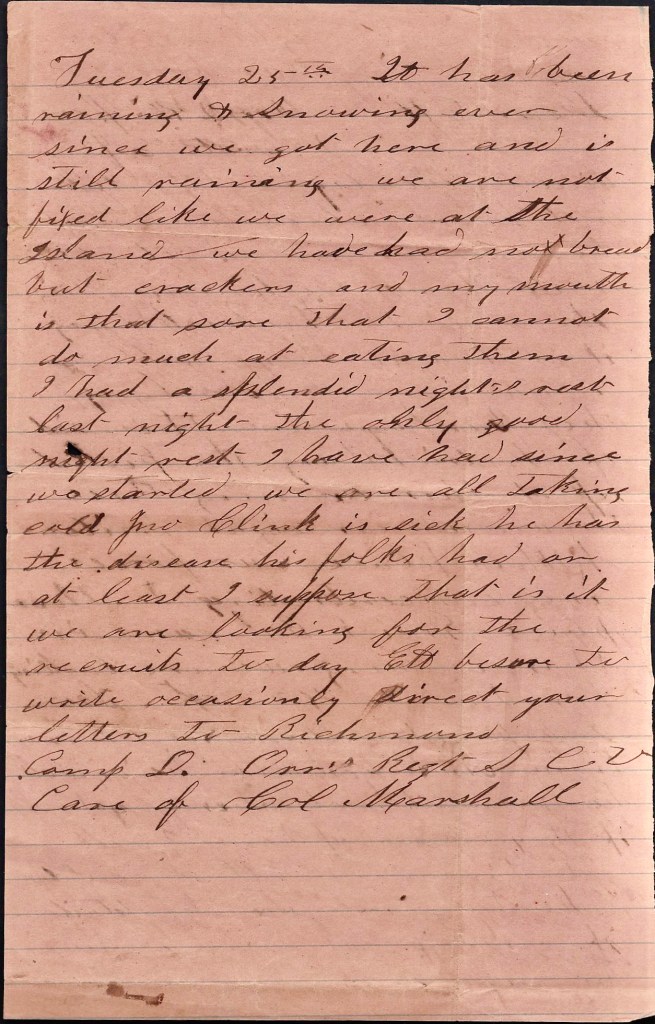 Tuesday 25th It has been
raining & Snowing ever
since we got here and is
still raining we are not
fixed like we were at the
Island we have had no bread
but crackers and my mouth
is that sore that I cannot
do much at eating them
I had a splendid nights rest
last night the only good
night rest I have had since
we started. we are all taking
cold Jno Clink is sick he has
the disease his folks had or
at least I suppose that is it
we are looking for the
recruits to day besure to
write occasionly direct your
letters to Richmond
Comp D. Orr's Regt S C V
Care of Col Marshall